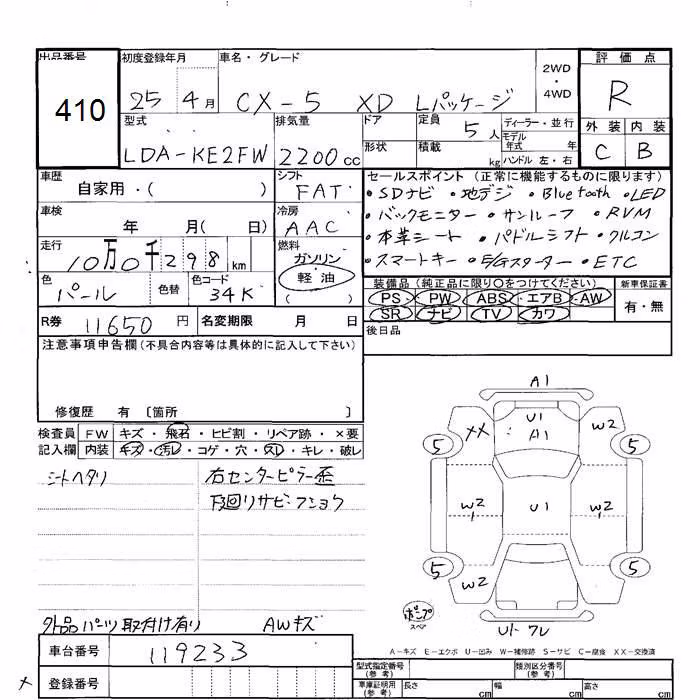 出品番号 初度登録年月 車名・グレード 2WD・4WD 評価点
410 25 4月 CX-5 XD Lパッケージ R
型式 排気量 ドア 定員 5人 ディーラー・並行 外装 内装
LDA-KE2FW 2200cc 形状 積載 kg モデル年式 年 ハンドル 左・右 C B
車歴 シフト セールスポイント (正常に機能するものに限ります)
自家用・( ) FAT ・SDナビ ・地デジ ・Bluetooth ・LED
車検 冷房 ・バックモニター ・サンルーフ ・RVM
年 月( 日) AAC ・本革シート ・パドルシフト ・クルコン
走行 10万0千298km 燃料 ガソリン 軽油 ( ) ・スマートキー ・E/Gスターター ・ETC
色 パール 色替 色コード 34K 装備品 (純正品に限り○をつけてください) 新車保証書
PS PW ABS エアB AW 有・無
SR ナビ TV カワ
R券 11650円 名変期限 月 日 後日品
注意事項申告欄 (不具合内容等は具体的に記入して下さい)
修復歴 有 〔箇所 〕
検査員 FW キズ・飛石・ヒビ割・リペア跡・×要
記入欄 内装 キズ・汚レ・コゲ・穴・スレ・キレ・破レ
シートヘタリ 右センターピラー歪
下回リサビフショク
外品パーツ取付け有り AWキズ
車台番号 119233
登録番号
A1
U1
A1
XX W2
5 5
W2 U1 W2
5 5
W2
ポンプ
スペア
U1・フレ
A-キズ E-エクボ U-凹み W-補修跡 S-サビ C-腐食 XX-交換済
型式指定番号(参考) 類別区分番号(参考)
車庫証明用(参考) 長さ cm 幅 cm 高さ cm